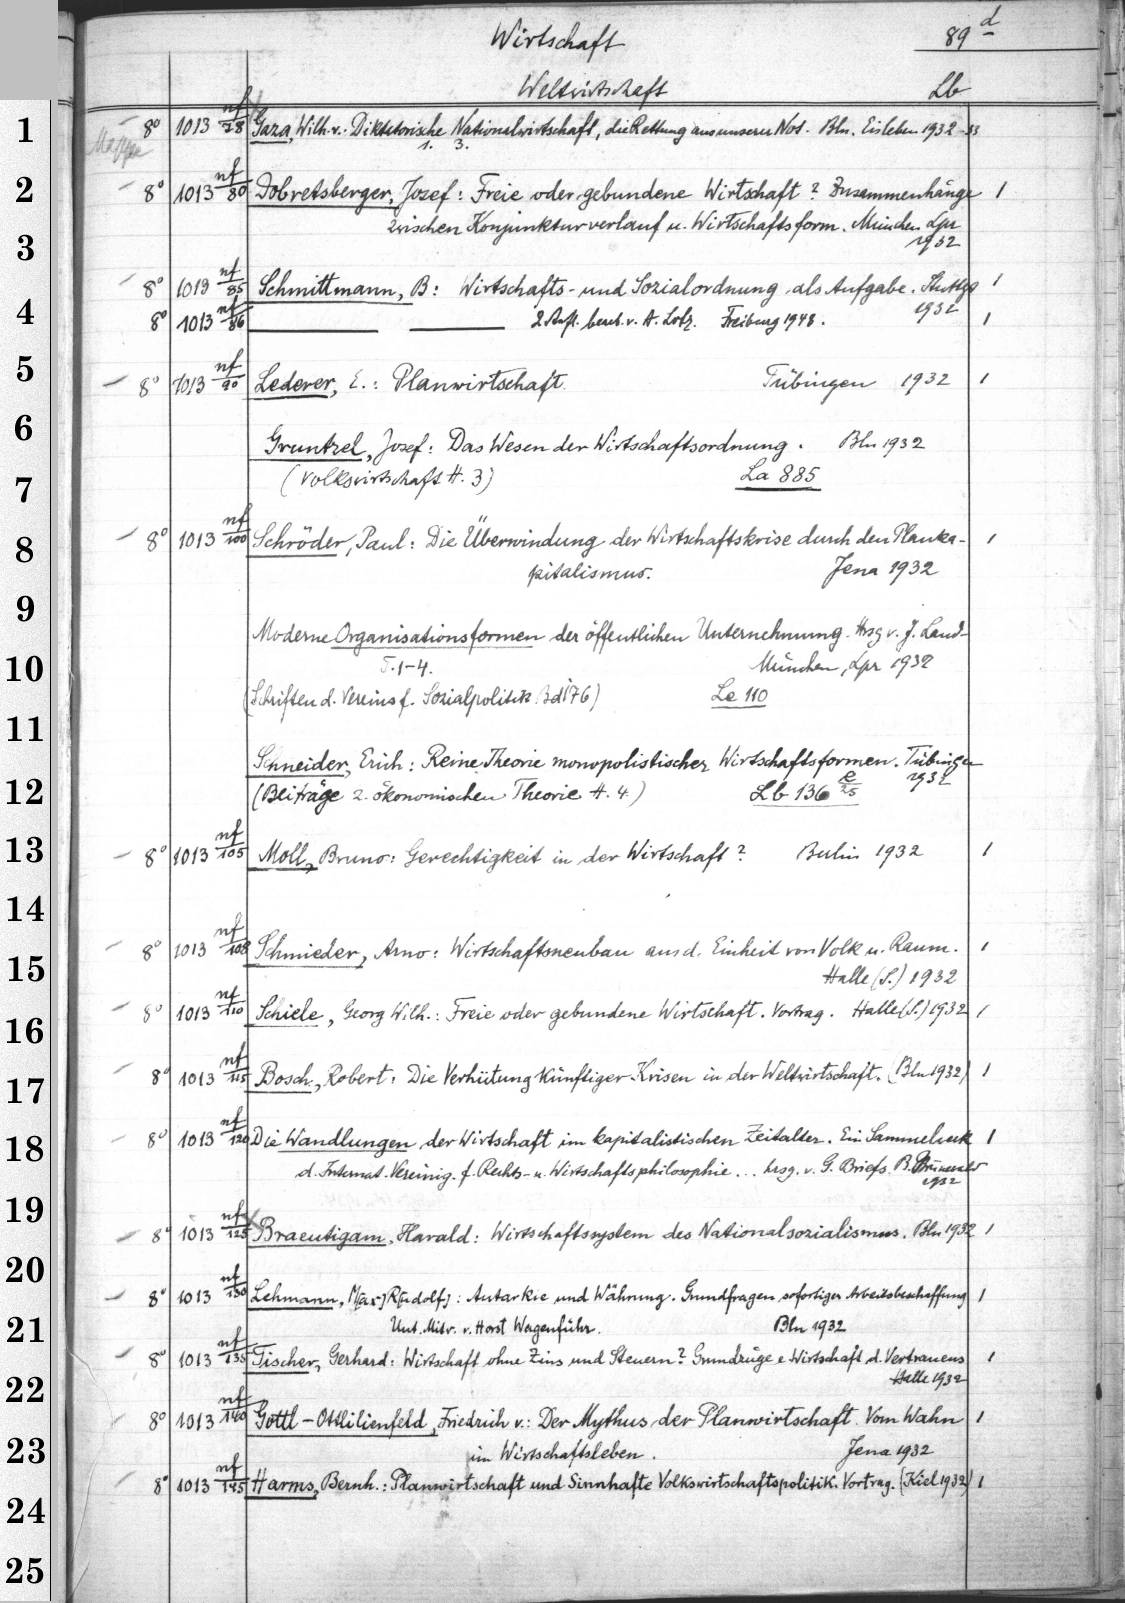 Wirtschaft 89 d
Weltwirtschaft Lb
1
8° 1013 nf/78 Gaza, Wilh. v.: Diktatorische Nationalwirtschaft, die Rettung aus unserer Not. Bln. Eisleben 1932-33
Mappe 1. 3.
2 8° 1013 nf/80 Dobretsberger, Josef: Freie oder gebundene Wirtschaft? Zusammenhänge 1
zwischen Konjunkturverlauf u. Wirtschaftsform. München Lpr
3 1932
8° 1013 nf/85 Schmittmann, B: Wirtschafts- und Sozialordnung als Aufgabe. Stuttg 1
1932
4 8° 1013 nf/86 2. Aufl. bearb. v. A. Lotz. Freiburg 1948. 1
5 8° 1013 nf/90 Lederer, E.: Planwirtschaft. Tübingen 1932 1
6 Gruntzel, Josef: Das Wesen der Wirtschaftsordnung. Bln 1932
7 (Volkswirtschaft H. 3) La 885
8 8° 1013 nf/100 Schröder, Paul: Die Überwindung der Wirtschaftskrise durch den Planka- 1
pitalismus. Jena 1932
9
Moderne Organisationsformen der öffentlichen Unternehmung. Hrsg v. J. Land-
10 T. 1-4. München, Lpr 1932
(Schriften d. Vereins f. Sozialpolitik Bd 176) Le 110
11
Schneider, Erich: Reine Theorie monopolistischer Wirtschaftsformen. Tübingen
1932
12 (Beiträge z. ökonomischen Theorie H. 4) Lb 136 e/25
13 8° 1013 nf/105 Moll, Bruno: Gerechtigkeit in der Wirtschaft? Berlin 1932 1
14
8° 1013 nf/108 Schmieder, Arno: Wirtschaftsneubau aus d. Einheit von Volk u. Raum. 1
15 Halle (S.) 1932
16 8° 1013 nf/110 Schiele, Georg Wilh.: Freie oder gebundene Wirtschaft. Vortrag. Halle (S.) 1932 1
17 8° 1013 nf/115 Bosch, Robert: Die Verhütung künftiger Krisen in der Weltwirtschaft. (Bln 1932) 1
18 8° 1013 nf/120 Die Wandlungen der Wirtschaft im kapitalistischen Zeitalter. Ein Sammelwerk 1
d. Internat. Vereinig. f. Rechts- u. Wirtschaftsphilosophie ... hrsg. v. G. Briefs. B. Grunewald
1932
19
8° 1013 nf/125 Braeutigam, Harald: Wirtschaftssystem des Nationalsozialismus. Bln 1932 1
20
8° 1013 nf/130 Lehmann, M[ax] R[udolf]: Autarkie und Währung. Grundfragen sofortiger Arbeitsbeschaffung 1
21 Unt. Mitw. v. Horst Wagenführ. Bln 1932
8° 1013 nf/135 Fischer, Gerhard: Wirtschaft ohne Zins und Steuern? Grundzüge e Wirtschaft d. Vertrauens 1
22 Halle 1932
8° 1013 nf/140 Gottl-Ottlilienfeld, Friedrich v.: Der Mythus der Planwirtschaft. Vom Wahn 1
23 im Wirtschaftsleben. Jena 1932
8° 1013 nf/145 Harms, Bernh.: Planwirtschaft und Sinnhafte Volkswirtschaftspolitik. Vortrag. (Kiel 1932) 1
24
25